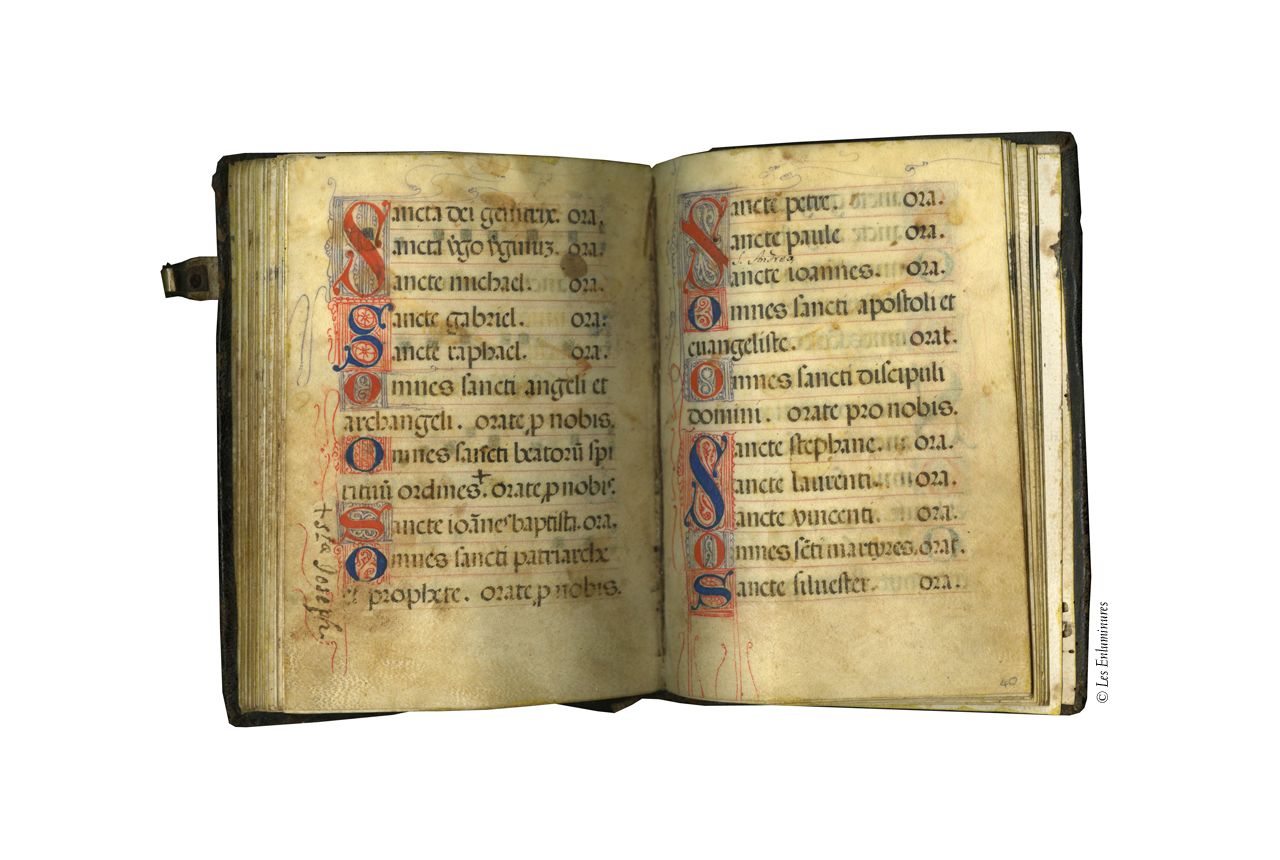 Sancta dei genitrix. ora.
Sancta v̄go v̄ginuʒ. ora.
Sancte michael. ora.
Sancte gabriel. ora.
Sancte raphael. ora.
Omnes sancti angeli et
archangeli. orate p nobis.
Omnes sancti beatorū spi
rituū ordines. orate p nobis.
Sancte ioānes baptista. ora.
Omnes sancti patriarche
et prophete. orate p nobis.
+ Joseph
Sancte petre. ora.
Sancte paule ora.
S. Andrea
Sancte ioannes. ora.
Omnes sancti apostoli et
euangeliste. orat.
Omnes sancti discipuli
domini. orate pro nobis.
Sancte stephane. ora.
Sancte laurenti. ora.
Sancte vincenti. ora.
Omnes sc̄ti martyres. orat.
Sancte siluester. ora.
40
© Les Enluminures